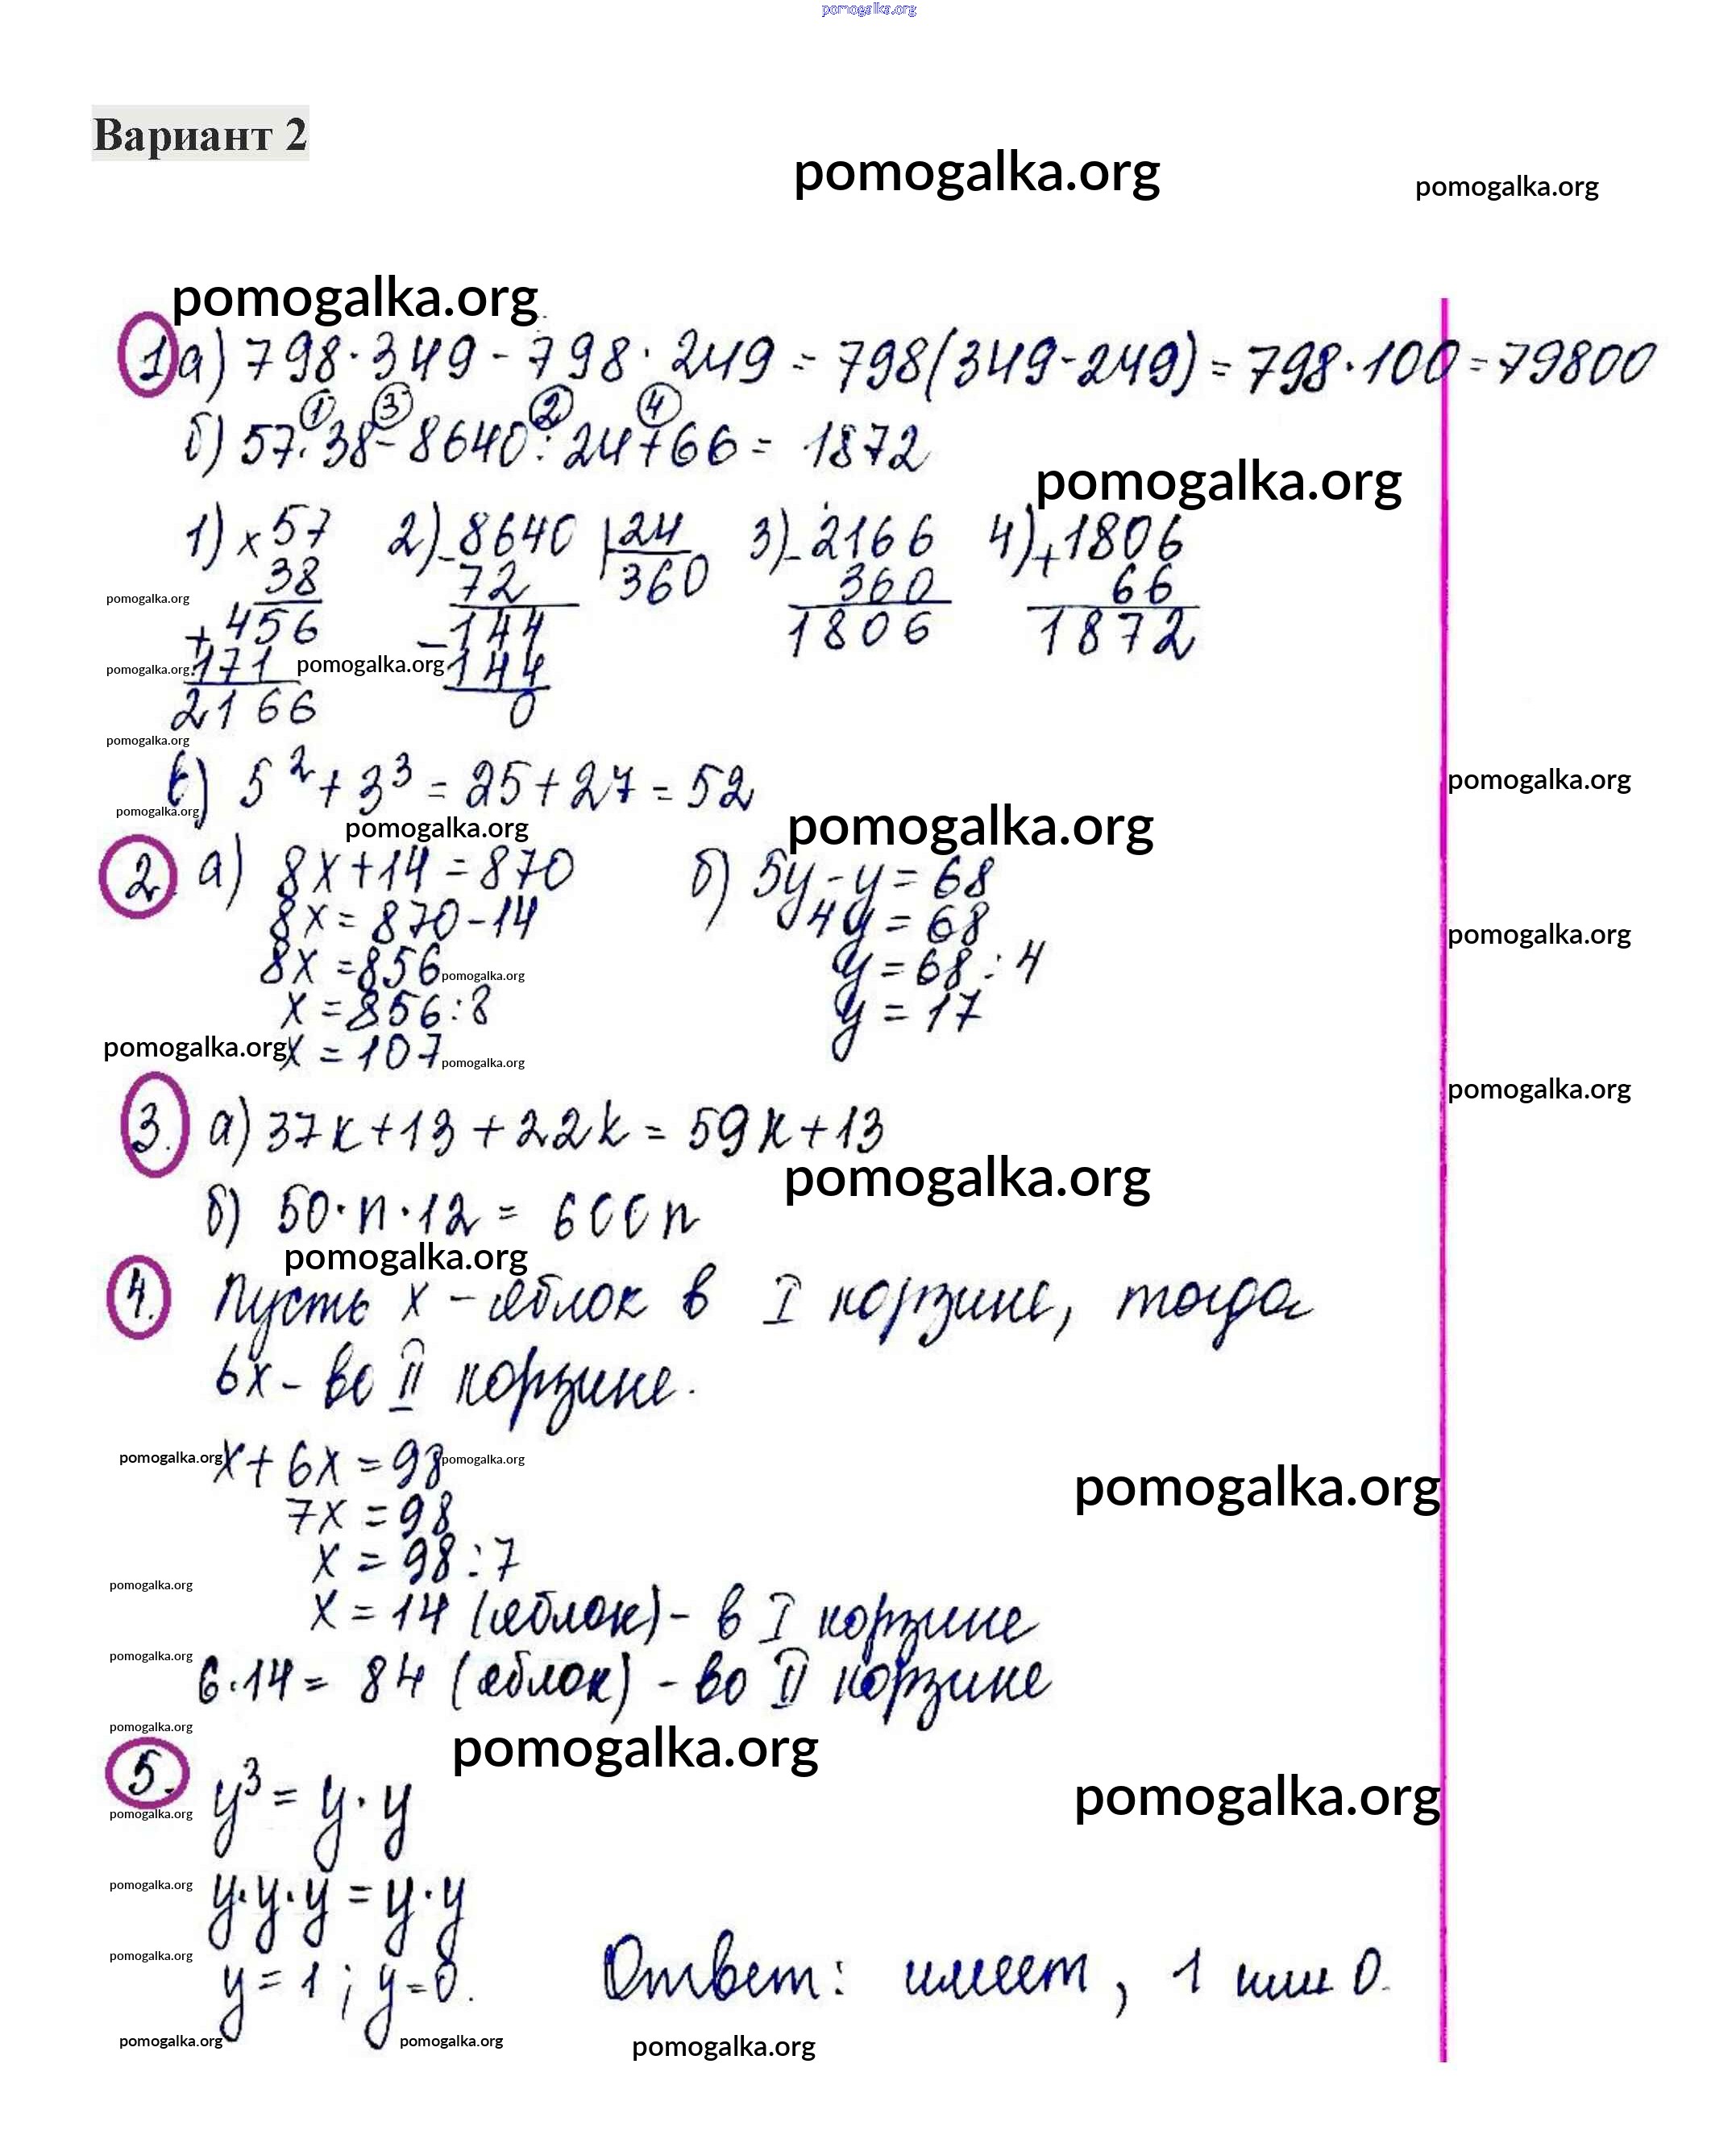 pomogalka.org
Вариант 2
pomogalka.org
pomogalka.org
pomogalka.org
1 а) 798·349-798·249=798(349-249)=798·100=79800
① ③ ② ④
б) 57·38-8640:24+66=1872
pomogalka.org
1) ×57 2) -8640 |24 3) -2166 4) +1806
38 72 360 360 66
pomogalka.org
+456 -144 1806 1872
pomogalka.org 171 pomogalka.org 144
2166 0
pomogalka.org
в) 5²+3³=25+27=52
pomogalka.org
pomogalka.org
pomogalka.org
pomogalka.org
2. а) 8x+14=870 б) 5y-y=68
8x=870-14 4y=68
pomogalka.org
8x=856 pomogalka.org y=68:4
x=856:8 y=17
pomogalka.org x=107 pomogalka.org
pomogalka.org
3. а) 37k+13+22k=59k+13
pomogalka.org
б) 50·n·12=600n
pomogalka.org
4. Пусть x - яблок в I корзине, тогда
6x - во II корзине.
pomogalka.org x+6x=98 pomogalka.org
pomogalka.org
7x=98
x=98:7
pomogalka.org
x=14 (яблок) - в I корзине
pomogalka.org
6·14=84 (яблок) - во II корзине
pomogalka.org
pomogalka.org
5. y³=y·y
pomogalka.org
pomogalka.org
pomogalka.org y·y·y=y·y
pomogalka.org
y=1; y=0. Ответ: имеет, 1 или 0.
pomogalka.org pomogalka.org pomogalka.org